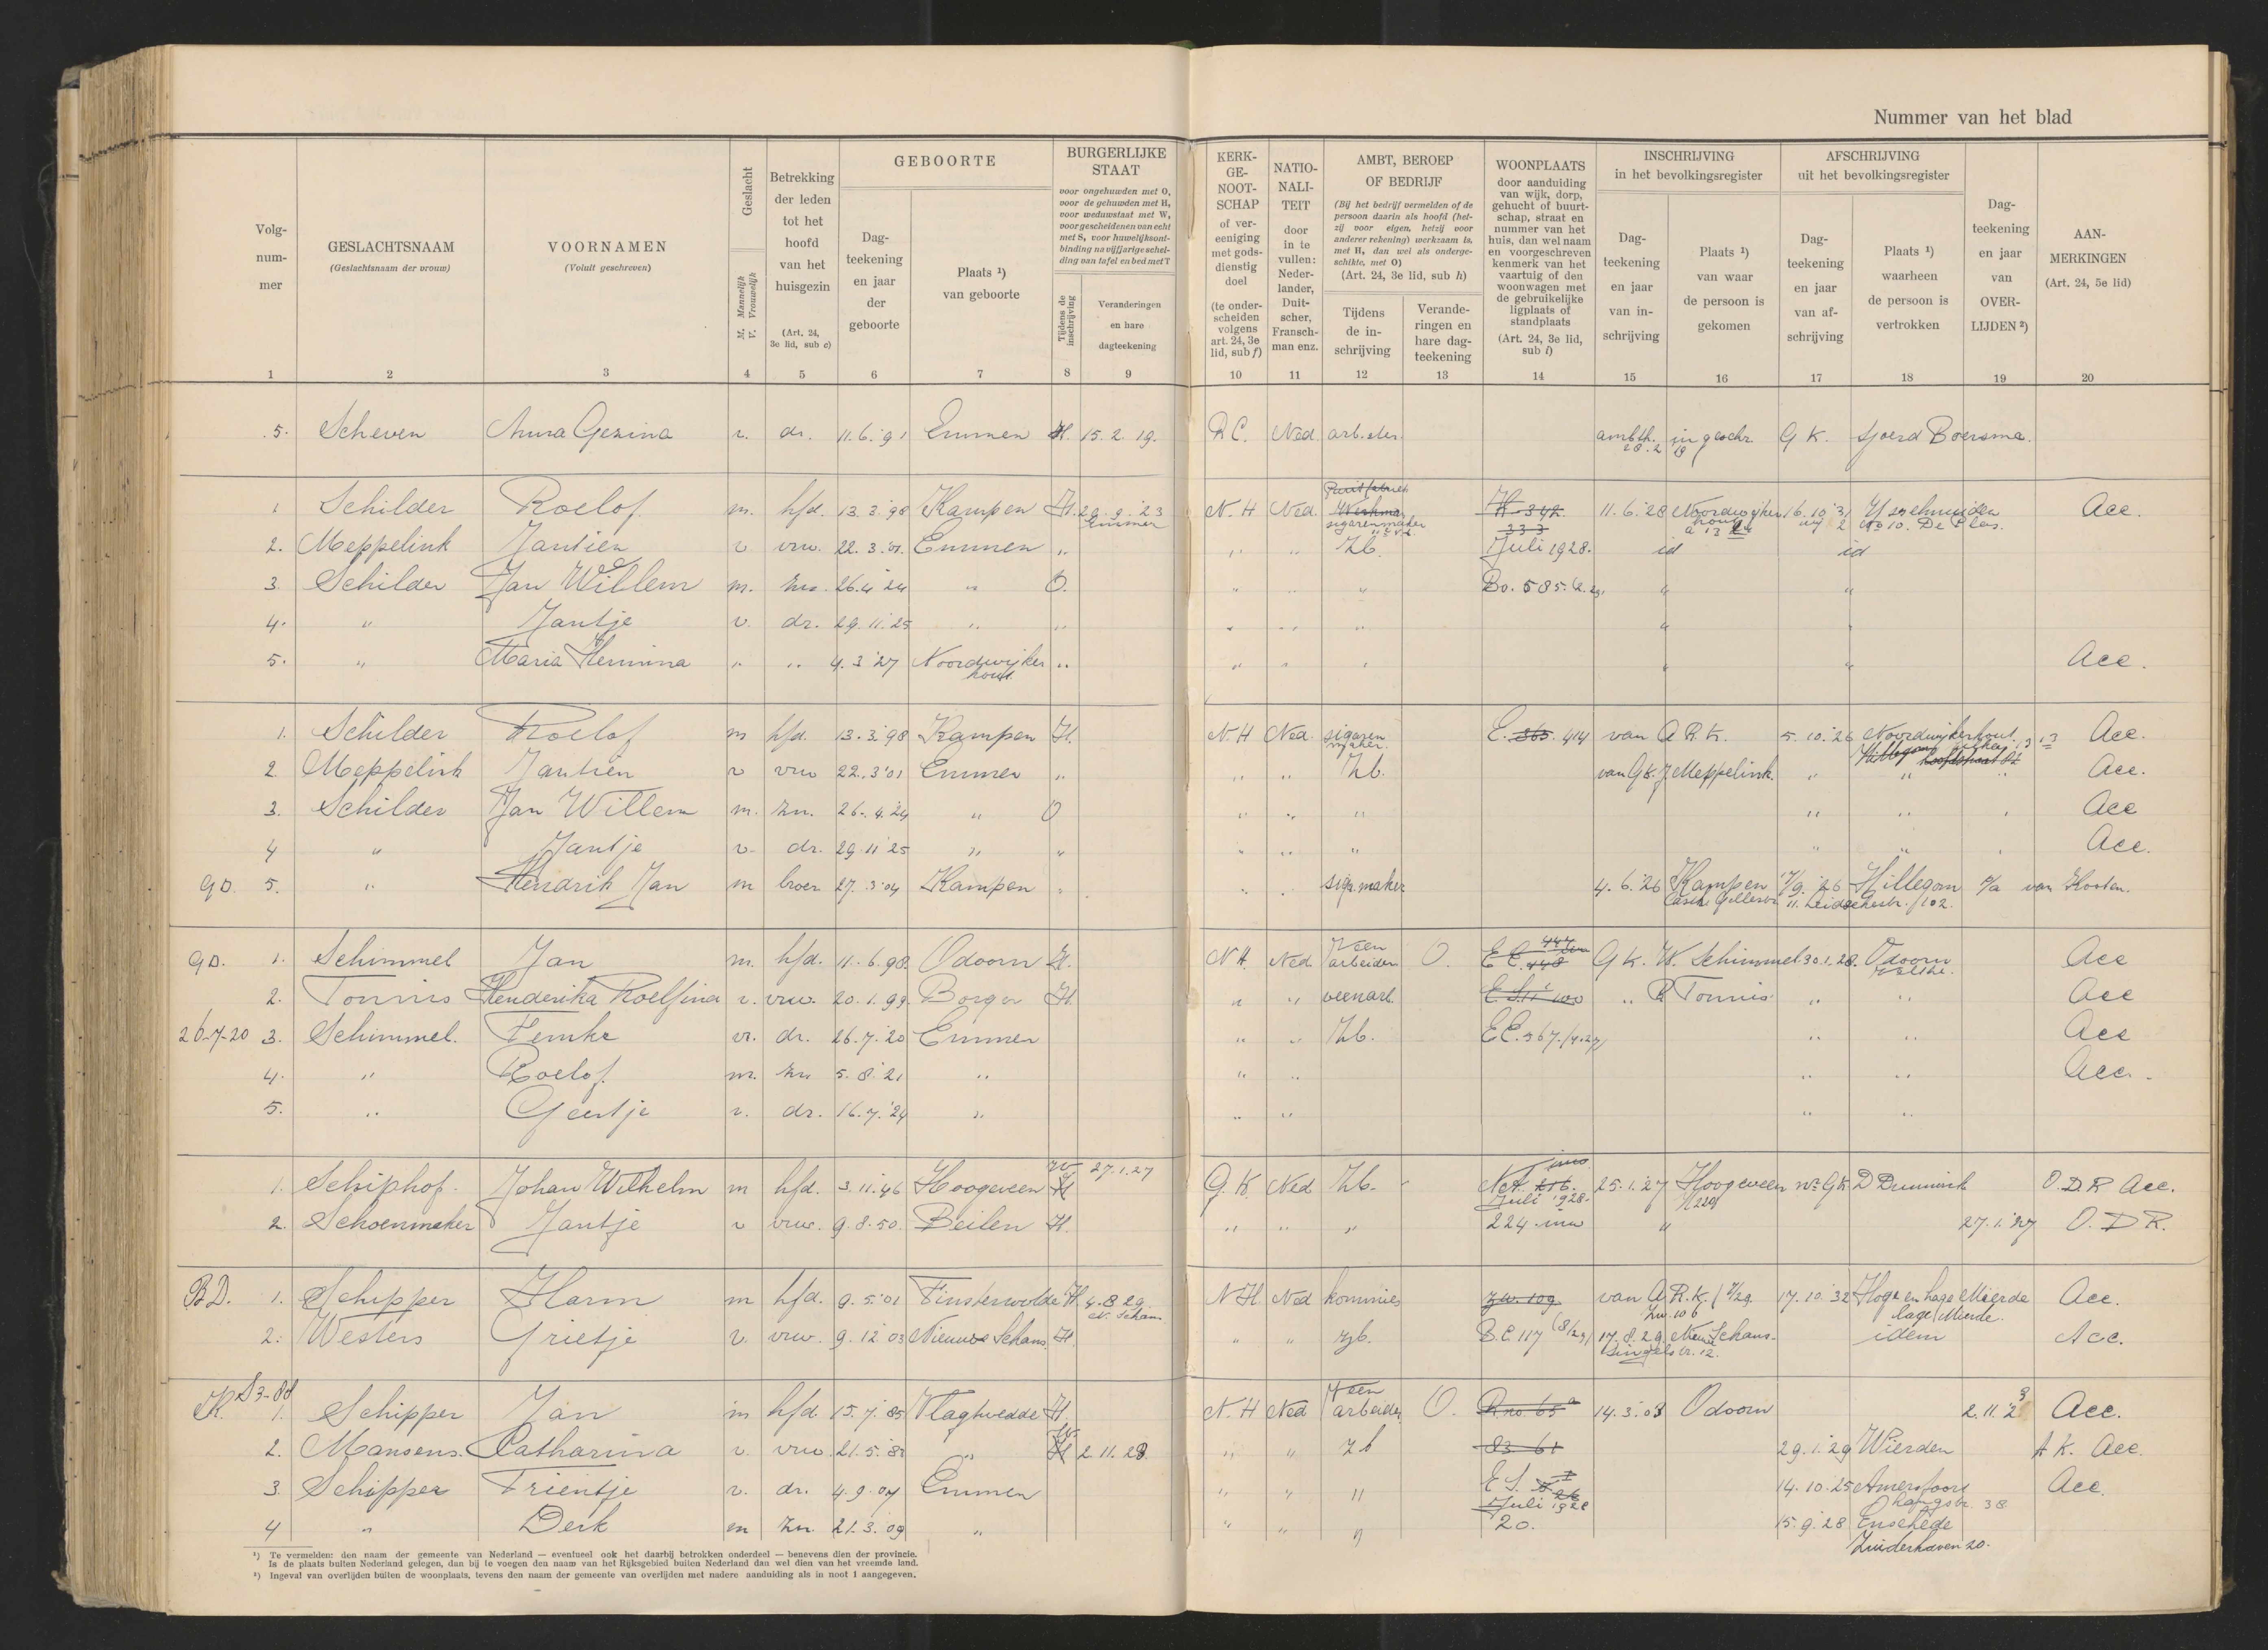 Nummer van het blad
Volg-
num-
mer
1
GESLACHTSNAAM
(Geslachtsnaam der vrouw)
2
VOORNAMEN
(Voluit geschreven)
3
Geslacht
M. Mannelijk
V. Vrouwelijk
4
Betrekking
der leden
tot het
hoofd
van het
huisgezin
(Art. 24,
3e lid, sub c)
5
GEBOORTE
Dag-
teekening
en jaar
der
geboorte
6
Plaats ¹)
van geboorte
7
BURGERLIJKE
STAAT
voor ongehuwden met O,
voor de gehuwden met H,
voor weduwstaat met W,
voor gescheidenen van echt
met S, voor huwelijksont-
binding na vijfjarige schei-
ding van tafel en bed met T
Tijdens de
inschrijving
8
Veranderingen
en hare
dagteekening
9
KERK-
GE-
NOOT-
SCHAP
of ver-
eeniging
met gods-
dienstig
doel
(te onder-
scheiden
volgens
art. 24, 3e
lid, sub f)
10
NATIO-
NALI-
TEIT
door
in te
vullen:
Neder-
lander,
Duit-
scher,
Fransch-
man enz.
11
AMBT, BEROEP
OF BEDRIJF
(Bij het bedrijf vermelden of de
persoon daarin als hoofd (het-
zij voor eigen, hetzij voor
anderer rekening) werkzaam is,
met H, dan wel als onderge-
schikte, met O)
(Art. 24, 3e lid, sub h)
Tijdens
de in-
schrijving
12
Verande-
ringen en
hare dag-
teekening
13
WOONPLAATS
door aanduiding
van wijk, dorp,
gehucht of buurt-
schap, straat en
nummer van het
huis, dan wel naam
en voorgeschreven
kenmerk van het
vaartuig of den
woonwagen met
de gebruikelijke
ligplaats of
standplaats
(Art. 24, 3e lid,
sub i)
14
INSCHRIJVING
in het bevolkingsregister
Dag-
teekening
en jaar
van in-
schrijving
15
Plaats ¹)
van waar
de persoon is
gekomen
16
AFSCHRIJVING
uit het bevolkingsregister
Dag-
teekening
en jaar
van af-
schrijving
17
Plaats ¹)
waarheen
de persoon is
vertrokken
18
Dag-
teekening
en jaar
van
OVER-
LIJDEN ²)
19
AAN-
MERKINGEN
(Art. 24, 5e lid)
20
5. Scheven Anna Gezina v. dr. 11.6.'91 Emmen H. 15.2.19. R C. Ned. arb.ster ambth. ingeschr. G K. Sjoerd Boersma.
28.2 19
1 Schilder Roelof m. hfd. 13.3.'98 Kampen H. 29.9.23 N. H Ned. Werkman K 342 11.6.'28 Noordwijker 16.10.'31 IJsselmuiden Acc.
Emmen sigarenmaker 333 hout No 10. De Plas.
2. Meppelink Jantien v vrw. 22.3.'01. Emmen " " " Zb. Juli 1928. id id
3. Schilder Jan Willem m. zn. 26.4.'24 " O. " " " Bo. 585. " "
4. " Jantje v. dr. 29.11.'25 " " " " " " "
5. " Maria Hermina " " 4.3.'27 Noordwijker " " " " " " Acc.
hout.
1. Schilder Roelof m hfd. 13.3.'98 Kampen H. N. H Ned. sigaren E. 365. 414 van A R. K. 5.10.'26 Noordwijkerhout Acc.
maker.
2. Meppelink Jantien v vrw 22.3.'01 Emmen " " " Zb. van G K. J Meppelink. " " " Acc.
3. Schilder Jan Willem m. zn. 26.4.'24 " O " " " " " " Acc
4 " Jantje v. dr. 29.11.'25 " " " " " " " " Acc.
GD. 5. " Hendrik Jan m broer 27.3.'04 Kampen " " " siga.maker 4.6.'26 Kampen 17/9.'26 Hillegom p/a van Kooten.
102.
GD. 1. Schimmel Jan m. hfd. 11.6.98. Odoorn H. N H. Ned Veen O. G K. W. Schimmel 30.1.28. Odoorn Acc
arbeider Valthe.
2. Tonnis Henderika Roelfina v. vrw. 20.1.99. Borger H. " " veenarb. " R Tonnis " " Acc
26-7-20 3. Schimmel. Femke vr. dr. 26.7.'20 Emmen " " Zb. EC. 367. " " Acc
4. " Roelof. m. zn 5.8.'21 " " " " " Acc.
5. " Geertje v. dr. 16.7.'24 " " " " "
1. Schiphof. Johan Wilhelm m hfd. 3.11.46 Hoogeveen W H 27.1.27 G. K. Ned Zb. NA. 216. 25.1.'27 Hoogeveen G K D Dummink O. D. R Acc.
Juli 1928.
2. Schoenmaker Jantje v vrw. 9.8.50. Beilen H. " " " 224 " 27.1.'27 O. D R.
BD. 1. Schipper Harm m hfd. 9.5.'01 Finsterwolde H. 4.8.29. N. H. Ned kommies Zw. 109. van A R. K. 17.10.32 Hooge en lage Mierde Acc.
N. Schans Zw. 106 lage Mierde.
2. Westers Grietje v. vrw. 9.12.03 Nieuwe Schans. H. " " zb. B.C. 117 (8/29) 17.8.29. Nieuwe Schans. idem Acc.
Singelstr. 12.
K. 1. Schipper Jan m hfd 15.7.'85 Vlagtwedde H. N. H Ned Veen O. R no 65 14.3.'08 Odoorn 2.11.28 Acc.
arbeider
2. Mansens. Catharina v. vrw. 21.5.'82 " H W 2.11.28. " " Zb 83 61 29.1.'29 Wierden A K. Acc.
3. Schipper Trientje v. dr. 4.9.07 Emmen " " " E S. 14.10.25 Amersfoort Acc.
Juli 1928 38
4 " Derk m zn. 21.3.09 " " " " 20. 15.9.'28 Enschede
Zuiderhaven 20.
¹) Te vermelden: den naam der gemeente van Nederland — eventueel ook het daarbij betrokken onderdeel — benevens dien der provincie.
Is de plaats buiten Nederland gelegen, dan bij te voegen den naam van het Rijksgebied buiten Nederland dan wel dien van het vreemde land.
²) Ingeval van overlijden buiten de woonplaats, tevens den naam der gemeente van overlijden met nadere aanduiding als in noot 1 aangegeven.